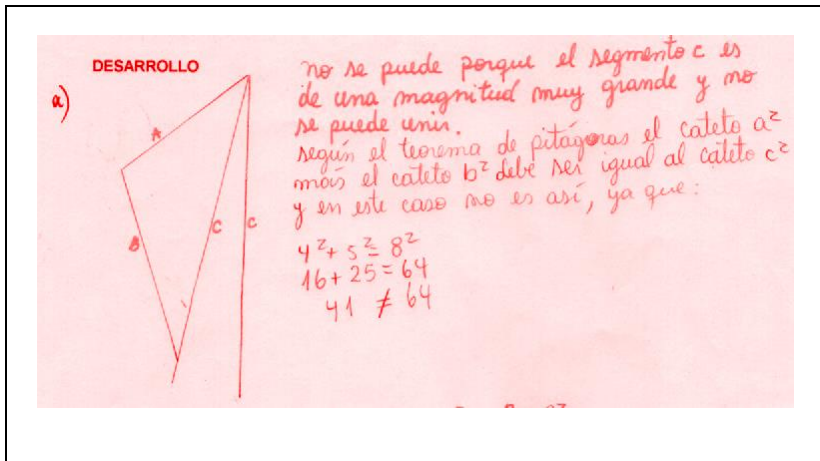 DESARROLLO
a)
A
B
C
C
no se puede porque el segmento c es
de una magnitud muy grande y no
se puede unir.
según el teorema de pitágoras el cateto a²
más el cateto b² debe ser igual al cateto c²
y en este caso no es así, ya que:
4² + 5² = 8²
16 + 25 = 64
41 ≠ 64